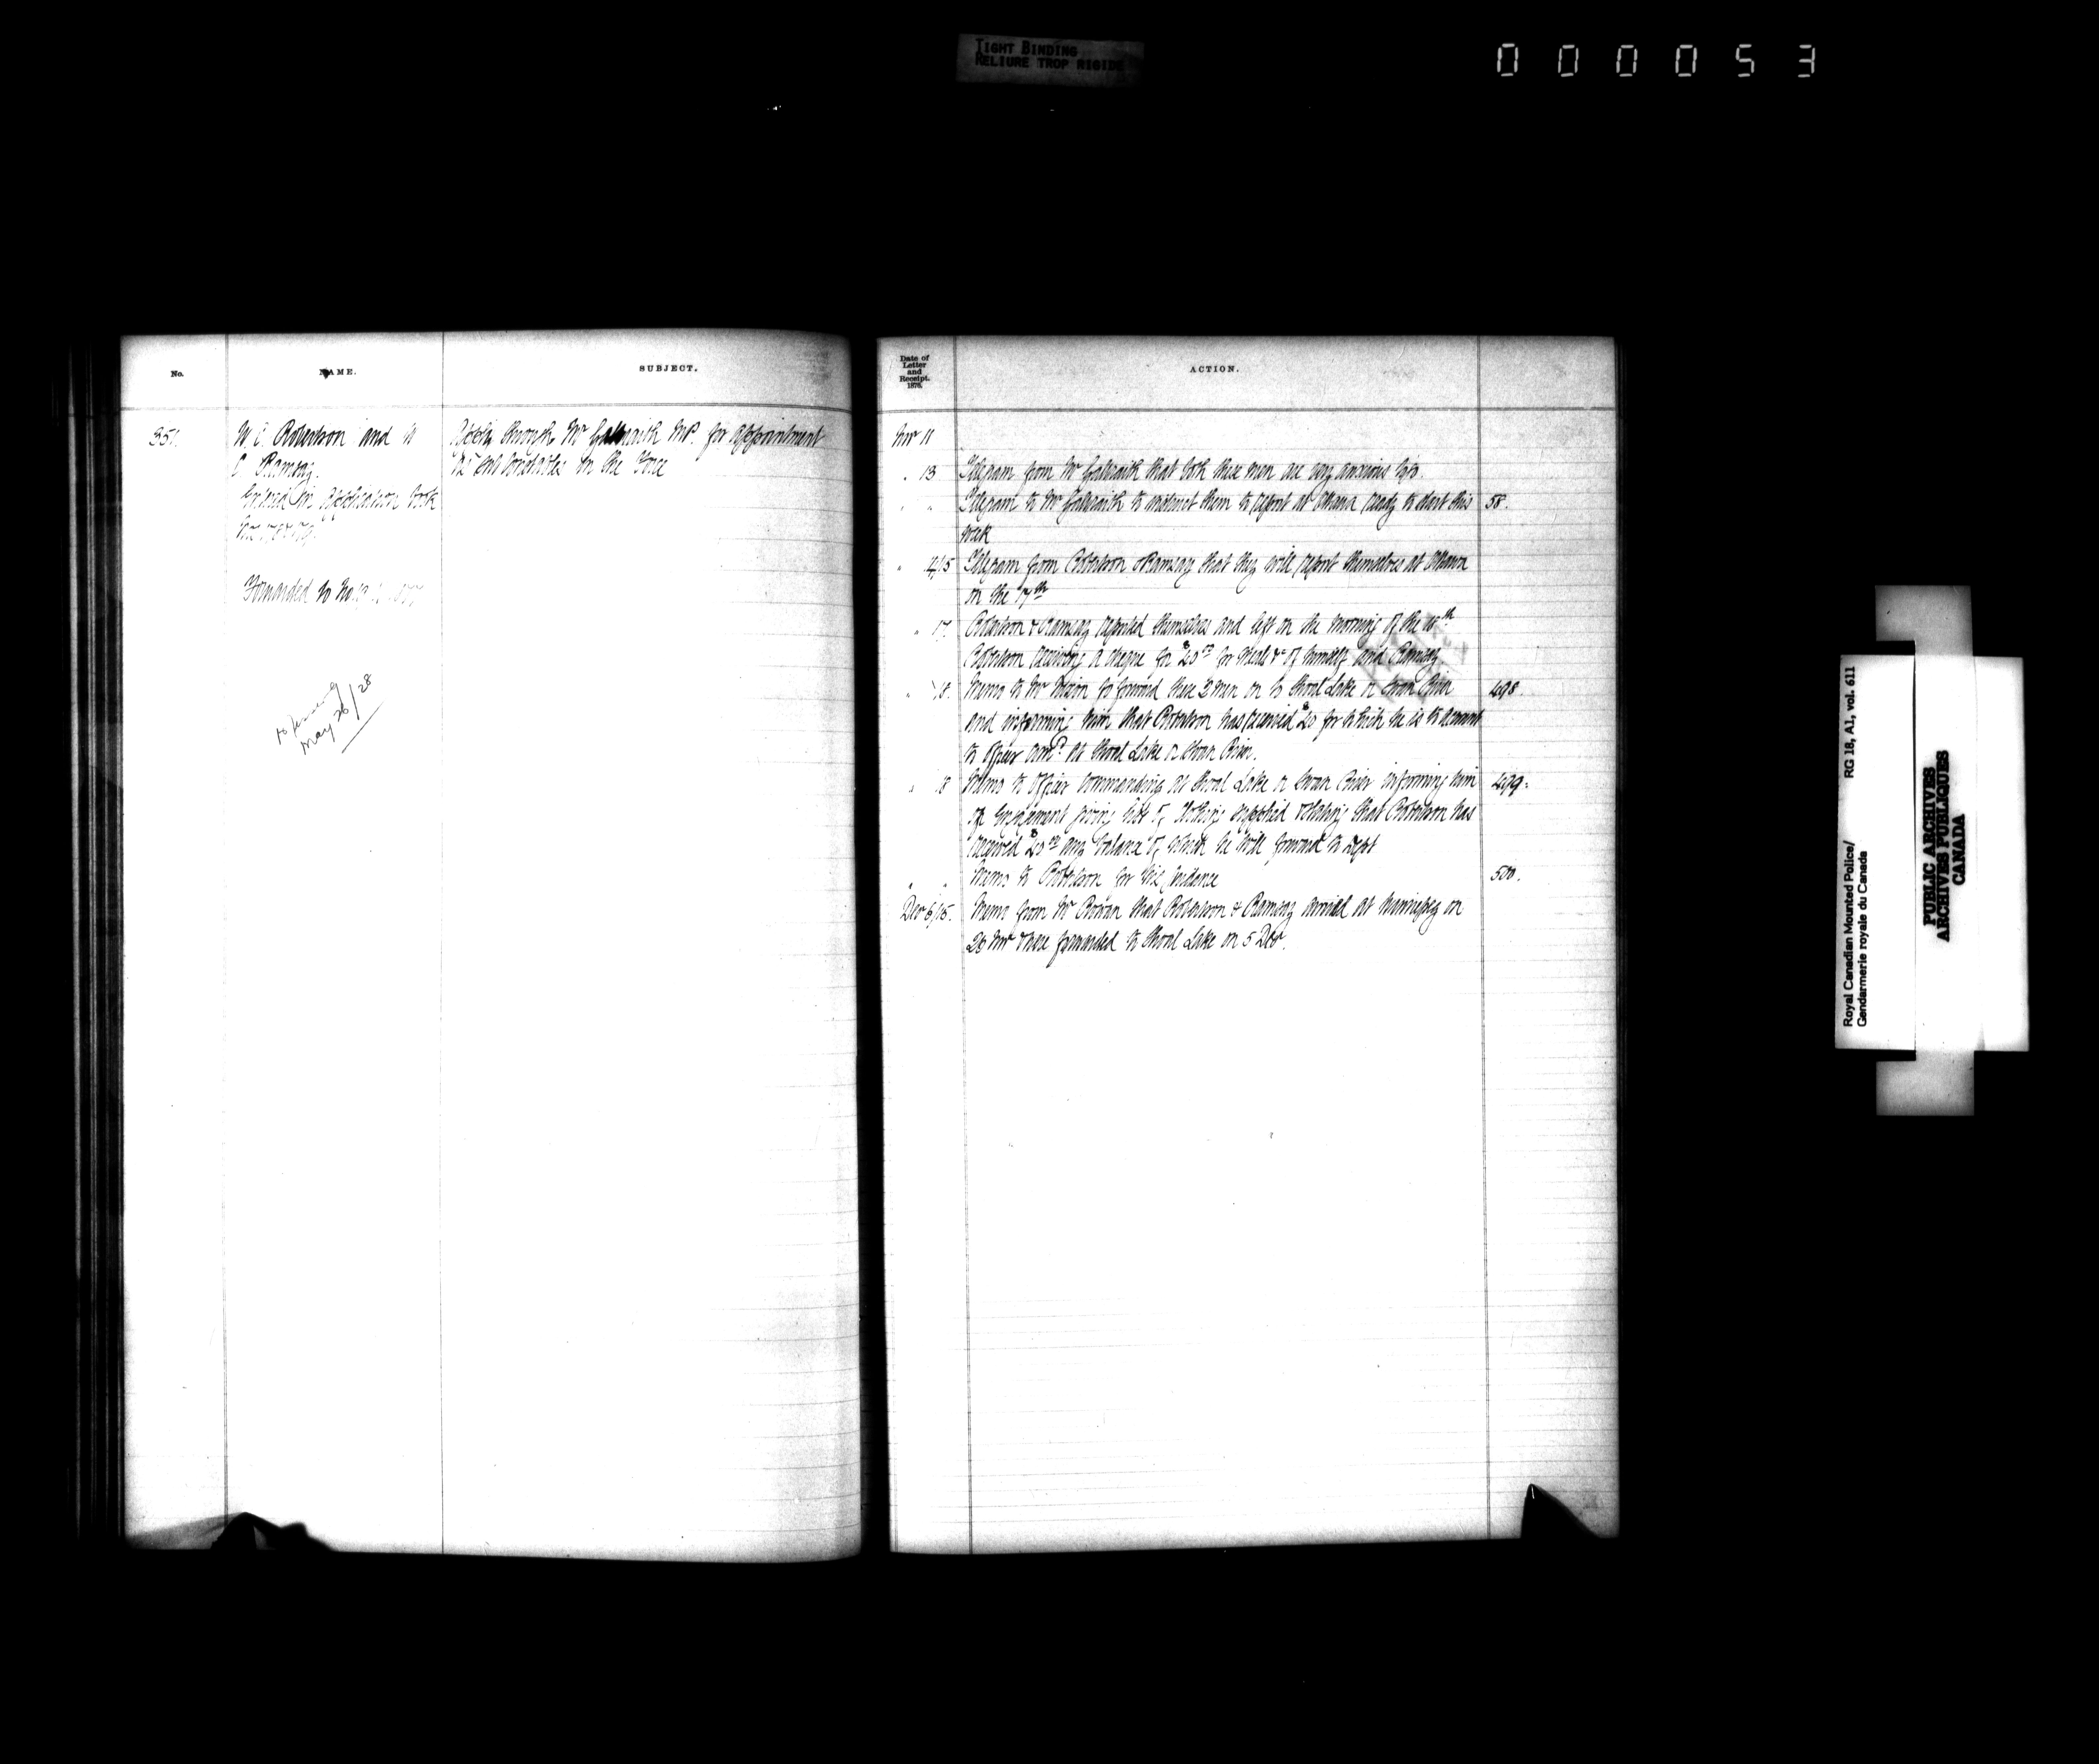 TIGHT BINDING
RELIURE TROP RIGIDE
000053
No.
NAME.
SUBJECT.
351.
W. C. Robertson and W
C Ramsay.
Entered in application book
Forwarded to
May 26/28
Applg through Mr Galbraith MP. for appointment
as Sub Constables in the Force
Date of
Letter
and
Receipt.
1876.
ACTION.
Nov 11
" 13 Telegram from Mr Galbraith that both these men are very anxious to go.
" " Telegram to Mr Galbraith to instruct them to report at Ottawa ready to start this 58.
week
" 14/15 Telegram from Robertson & Ramsay that they will report themselves at Ottawa
on the 17th
" 17. Robertson & Ramsay reported themselves and left on the morning of the 18th
Robertson receiving a cheque for $20 00 for Meals &c of himself and Ramsay.
" 18. Memo to Mr Nixon to forward these 2 men on to Shoal Lake or Swan River 498
and informing him that Robertson has received $20 for which he is to account
to Officer comd. at Shoal Lake or Swan River.
" 18 Memo to Officer Commanding at Shoal Lake or Swan River informing him 499.
of engagement giving list of clothing supplied & stating that Robertson has
received $20 00 any balance of which he will forward to Dept
" " Memo to Robertson for his guidance 500.
Dec 6/15. Memo from Mr Rowan that Robertson & Ramsay arrived at Winnipeg on
26 Nov & were forwarded to Shoal Lake on 5 Decr.
Royal Canadian Mounted Police/
Gendarmerie royale du Canada
RG 18, A1, vol. 611
PUBLIC ARCHIVES
ARCHIVES PUBLIQUES
CANADA